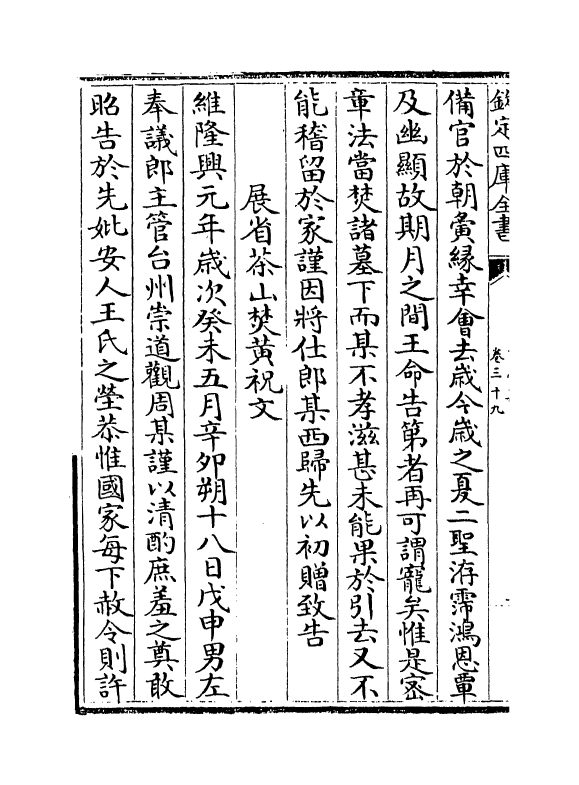 欽定四庫全書
卷三十九
備官於朝夤縁幸會去歳今歳之夏二聖洊霈鴻恩覃
及幽顯故期月之間王命告第者再可謂寵矣惟是宻
章法當焚諸墓下而某不孝滋甚未能果於引去又不
能稽留於家謹因將仕郎某西歸先以初贈致告
展省茶山焚黄祝文
維隆興元年歳次癸未五月辛卯朔十八日戊申男左
奉議郎主管台州崇道觀周某謹以清酌庶羞之奠敢
昭告於先妣安人王氏之塋恭惟國家每下赦令則許